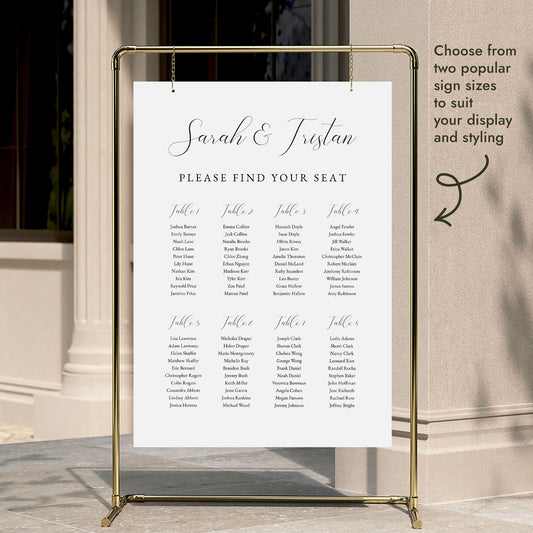 Choose from
two popular
sign sizes
to suit
your display
and styling
Sarah & Tristan
PLEASE FIND YOUR SEAT
Table 1
Joshua Barnes
Emily Barnes
Noah Lane
Chloe Lane
Peter Hunt
Lily Hunt
Nathan Kim
Isla Kim
Reynold Price
Jasmine Price
Table 2
Emma Collins
Jack Collins
Natalie Brooks
Ryan Brooks
Chloe Zhang
Ethan Nguyen
Madison Kerr
Tyler Kerr
Zoe Patel
Marcus Patel
Table 3
Hannah Doyle
Isaac Doyle
Olivia Rivera
Jason Kim
Amelia Thornton
Daniel McLeod
Ruby Saunders
Leo Baxter
Grace Hallow
Benjamin Hallow
Table 4
Angel Fowler
Joshua Fowler
Jill Walker
Erica Walker
Christopher McClain
Robert Mcclain
Anthony Robinson
William Johnson
James Santos
Amy Robinson
Table 5
Lisa Lawrence
Adam Lawrence
Helen Shaffer
Matthew Shaffer
Eric Bernard
Christopher Rogers
Colin Rogers
Cassandra Abbott
Lindsay Abbott
Jessica Herrera
Table 6
Nicholas Draper
Helen Draper
Marie Montgomery
Michelle Ray
Brandon Bush
Jeremy Bush
Keith Miller
Jose Garcia
Joshua Rankins
Michael Wood
Table 7
Joseph Clark
Sharon Clark
Chelsea Wong
George Wong
Frank Daniel
Noah Daniel
Veronica Bowman
Angela Cohen
Megan Parsons
Jeremy Johnson
Table 8
Leslie Adams
Sherri Clark
Nancy Clark
Leonard Rios
Randall Rocha
Stephen Baker
John Hoffman
Jose Richards
Rachael Ross
Jeffrey Bright